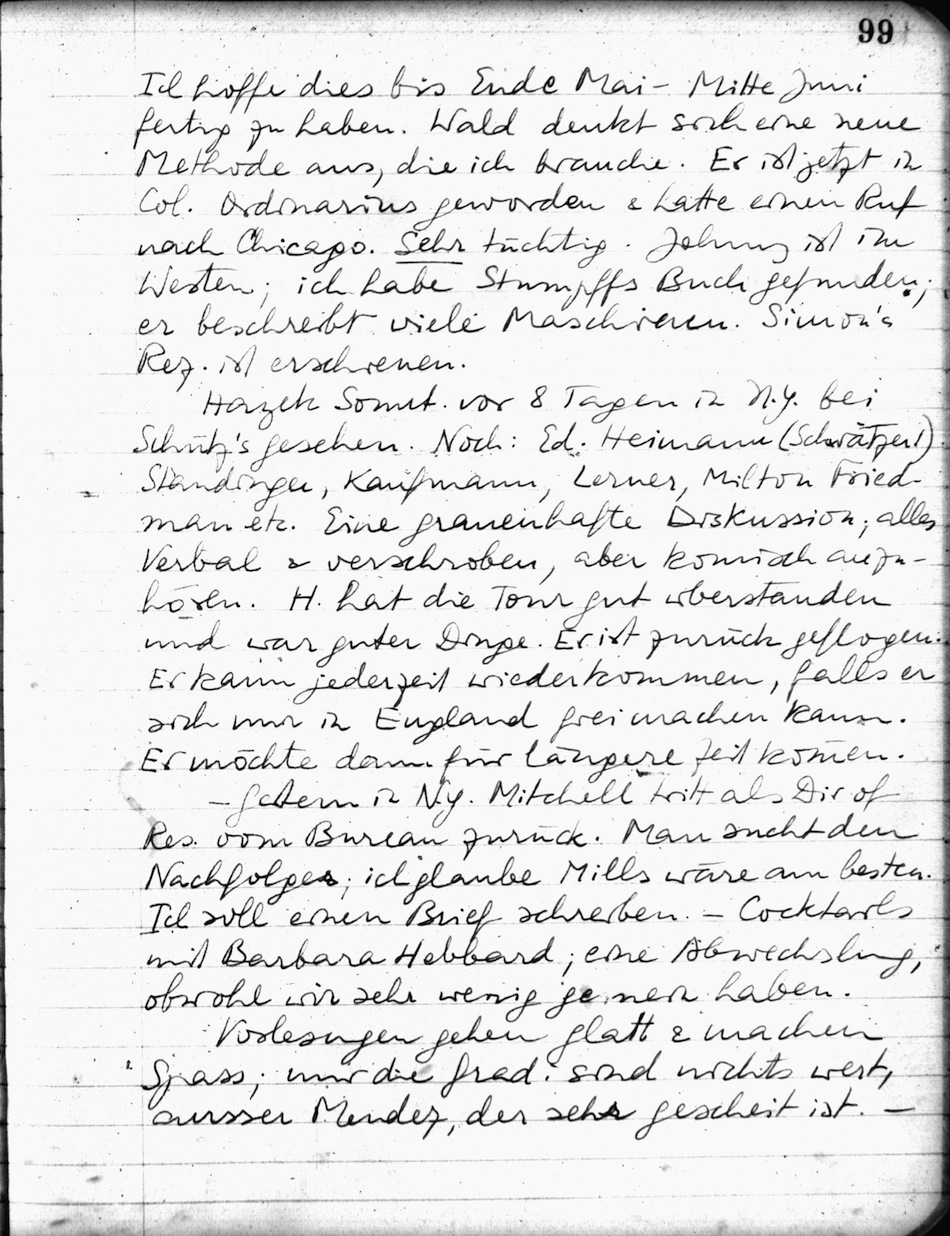 99
Ich hoffe dies bis Ende Mai – Mitte Juni
fertig zu haben. Wald denkt sich eine neue
Methode aus, die ich brauche. Er ist jetzt in
Col. Ordinarius geworden & hatte einen Ruf
nach Chicago. Sehr tüchtig. Johnny ist im
Westen; ich habe Stumpffs Buch gefunden;
er beschreibt viele Maschinen. Simon's
Rez. ist erschienen.
Hayek Sonnt. vor 8 Tagen in N.Y. bei
Schütz's gesehen. Noch: Ed. Heimann (Schwätzer!)
Staudinger, Kaufmann, Lerner, Milton Fried-
man etc. Eine grauenhafte Diskussion; alles
Verbal & verschroben, aber komisch anzu-
hören. H. hat die Tour gut überstanden
und war guter Dinge. Er ist zurück geflogen.
Er kann jederzeit wiederkommen, falls er
sich nur in England frei machen kann.
Er möchte dann für längere Zeit kom̄en.
– Gestern in N.Y. Mitchell tritt als Dir of
Res. vom Bureau zurück. Man sucht den
Nachfolger; ich glaube Mills wäre am besten.
Ich soll einen Brief schreiben. – Cocktails
mit Barbara Hebbard; eine Abwechslung,
obwohl wir sehr wenig gemein haben.
Vorlesungen gehen glatt & machen
Spass; nur die Grad. sind nichts wert,
ausser Mendez, der sehr gescheit ist. –